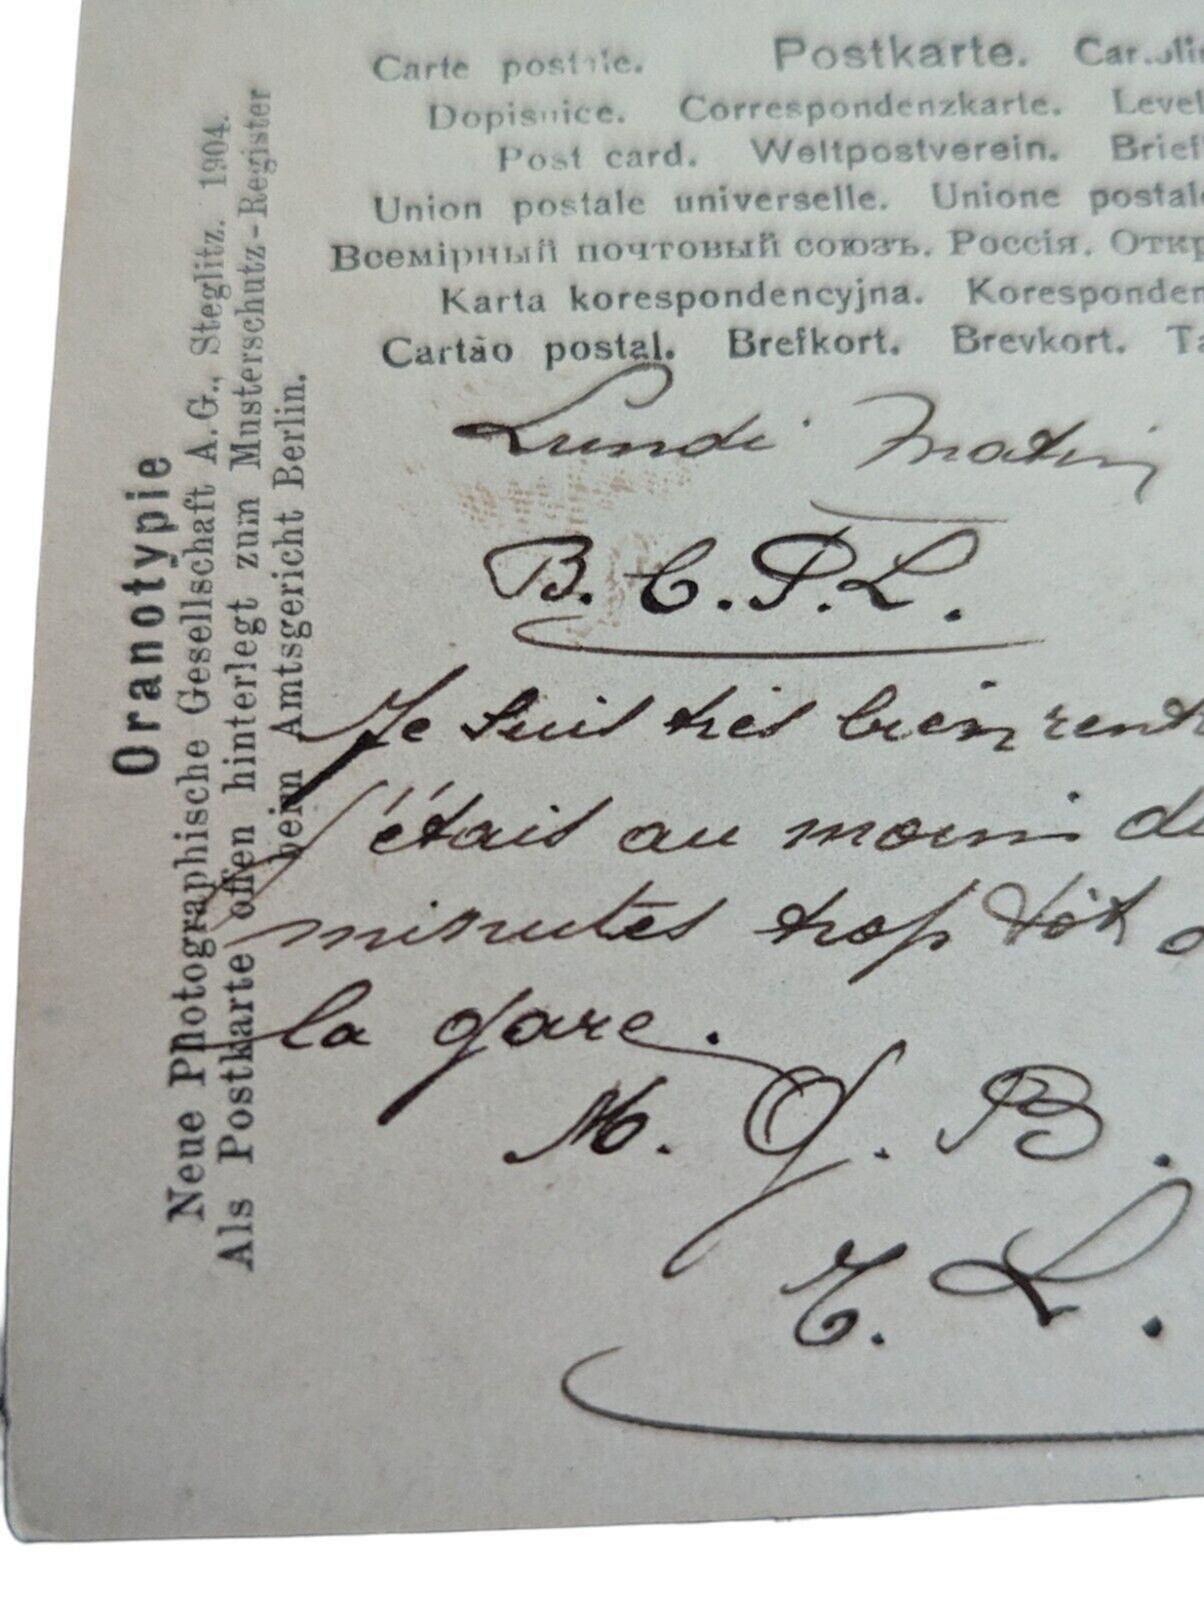 Carte postale. Postkarte.
Dopisnice. Correspondenzkarte. Level
Post card. Weltpostverein. Brief
Union postale universelle. Unione postale
Всемірный почтовый союзъ. Россія. Откр
Karta korespondencyjna. Koresponden
Cartão postal. Brefkort. Brevkort. Ta
Oranotypie
Neue Photographische Gesellschaft A.G., Steglitz. 1904.
Als Postkarte offen hinterlegt zum Musterschutz-Register
beim Amtsgericht Berlin.
Lundi Matin
B. C. P. L.
Je suis très bien rent
J'étais au moins d
minutes trop tôt
la gare.
M. J. B.
E. L.